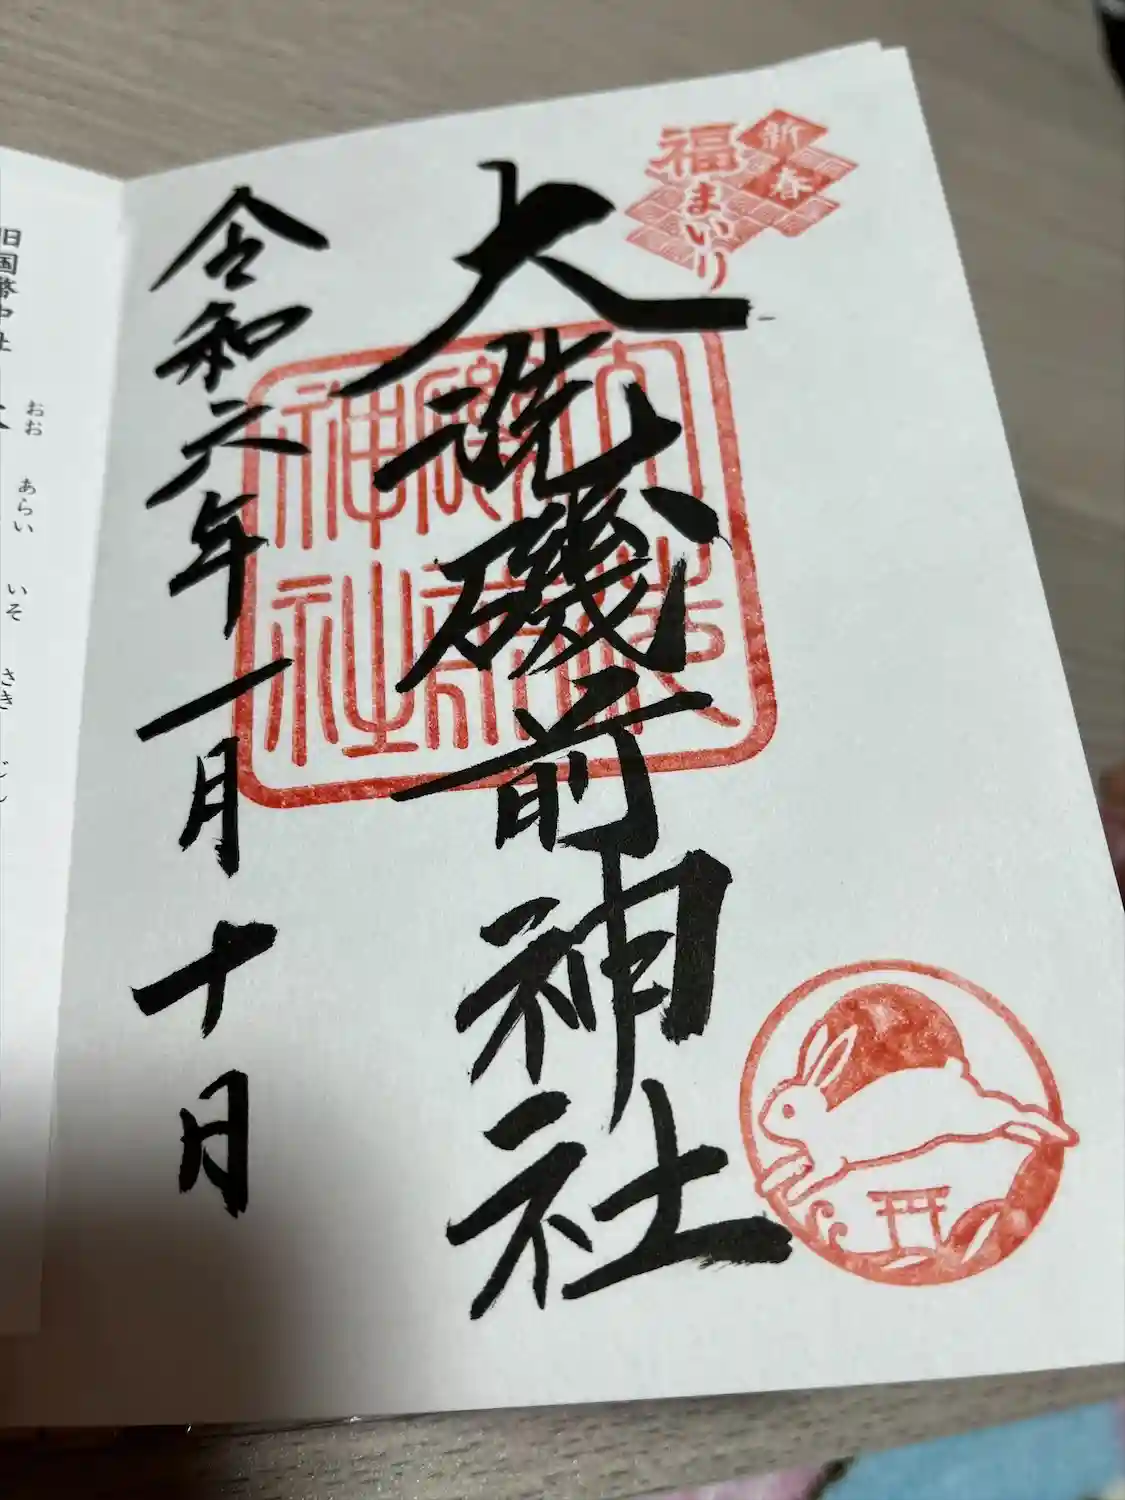 新春
福まいり
大洗磯前神社
大洗磯前神社
令和六年一月十日
旧国幣中社
おお あらい いそ さき じん